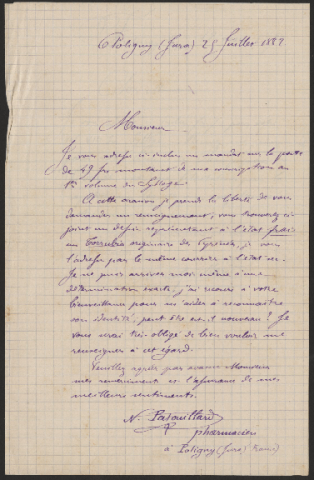 Poligny (Jura) 25 Juillet 1882
Monsieur
Je vous adresse ci-inclus un mandat sur la poste
de 49 frs montant de ma souscription au
1er volume du Sylloge.
A cette occasion je prends la liberté de vous
demander un renseignement, vous trouverez ci-
joint un dessin représentant à l'état frais
un Torrubia originaire des Cyclades, je vous
l'adresse par le même courrier à l'état sec.
Je ne puis arriver moi même à une
détermination exacte, j'ai recours à votre
bienveillance pour m'aider à reconnaitre
son identité, peut être est-il nouveau? Je
vous serai très-obligé de bien vouloir me
renseigner à cet égard.
Veuillez agréer par avance Monsieur
mes remerciements et l'assurance de mes
meilleurs sentiments.
N. Patouillard
pharmacien
à Poligny (Jura) France